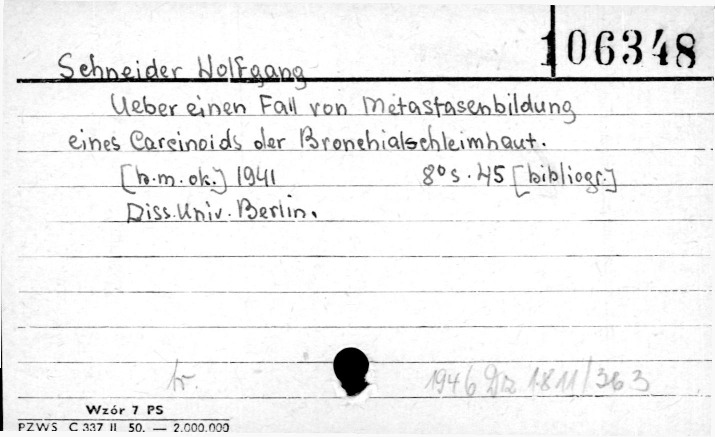 106348
Schneider Wolfgang
Ueber einen Fall von Metastasenbildung
eines Carcinoids der Bronchialschleimhaut.
[b.m.ok.] 1941 8° s. 45 [bibliogr.]
Diss. Univ. Berlin.
1946 Dz 1811/363
Wzór 7 PS
PZWS C 337 II 50. — 2.000.000